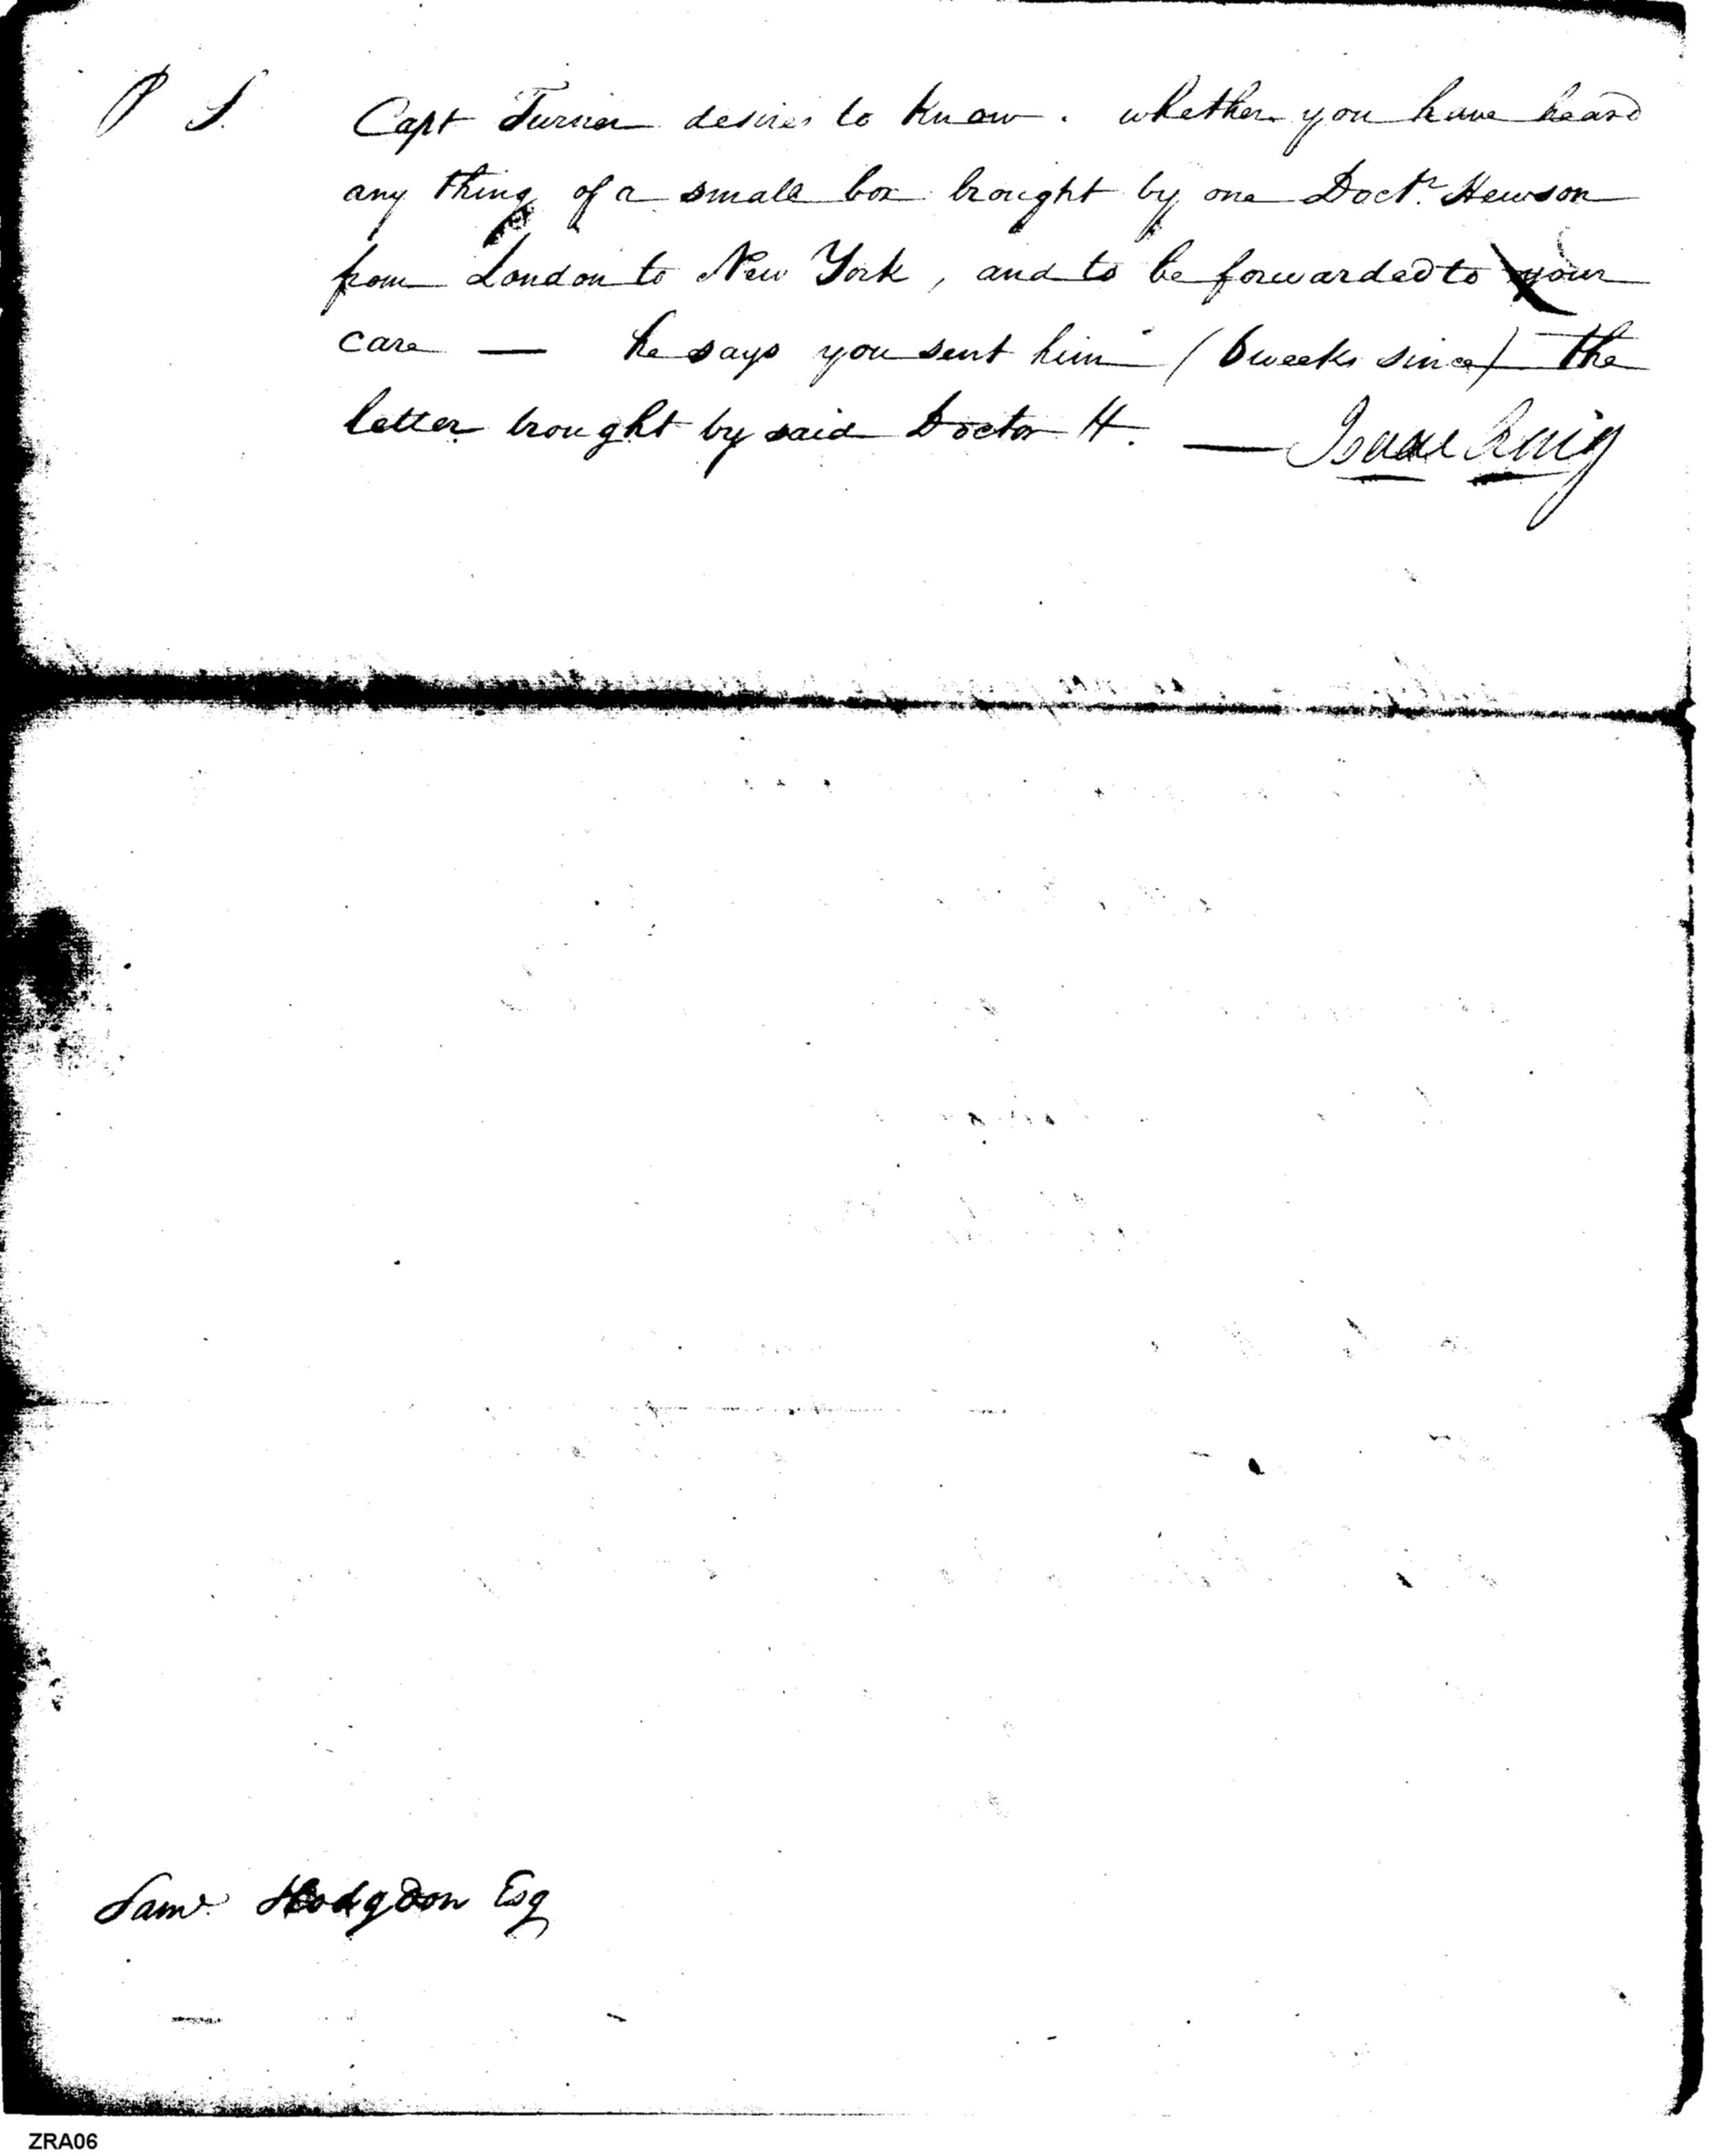 P S. Capt Turner desires to know. whether you have heard
any thing of a small box brought by one Doctr. Hewson
from London to New York, and to be forwarded to your
care — he says you sent him (6 weeks since) the
letter brought by said Doctor H. — Isaac Craig
Saml. Hodgdon Esq
ZRA06